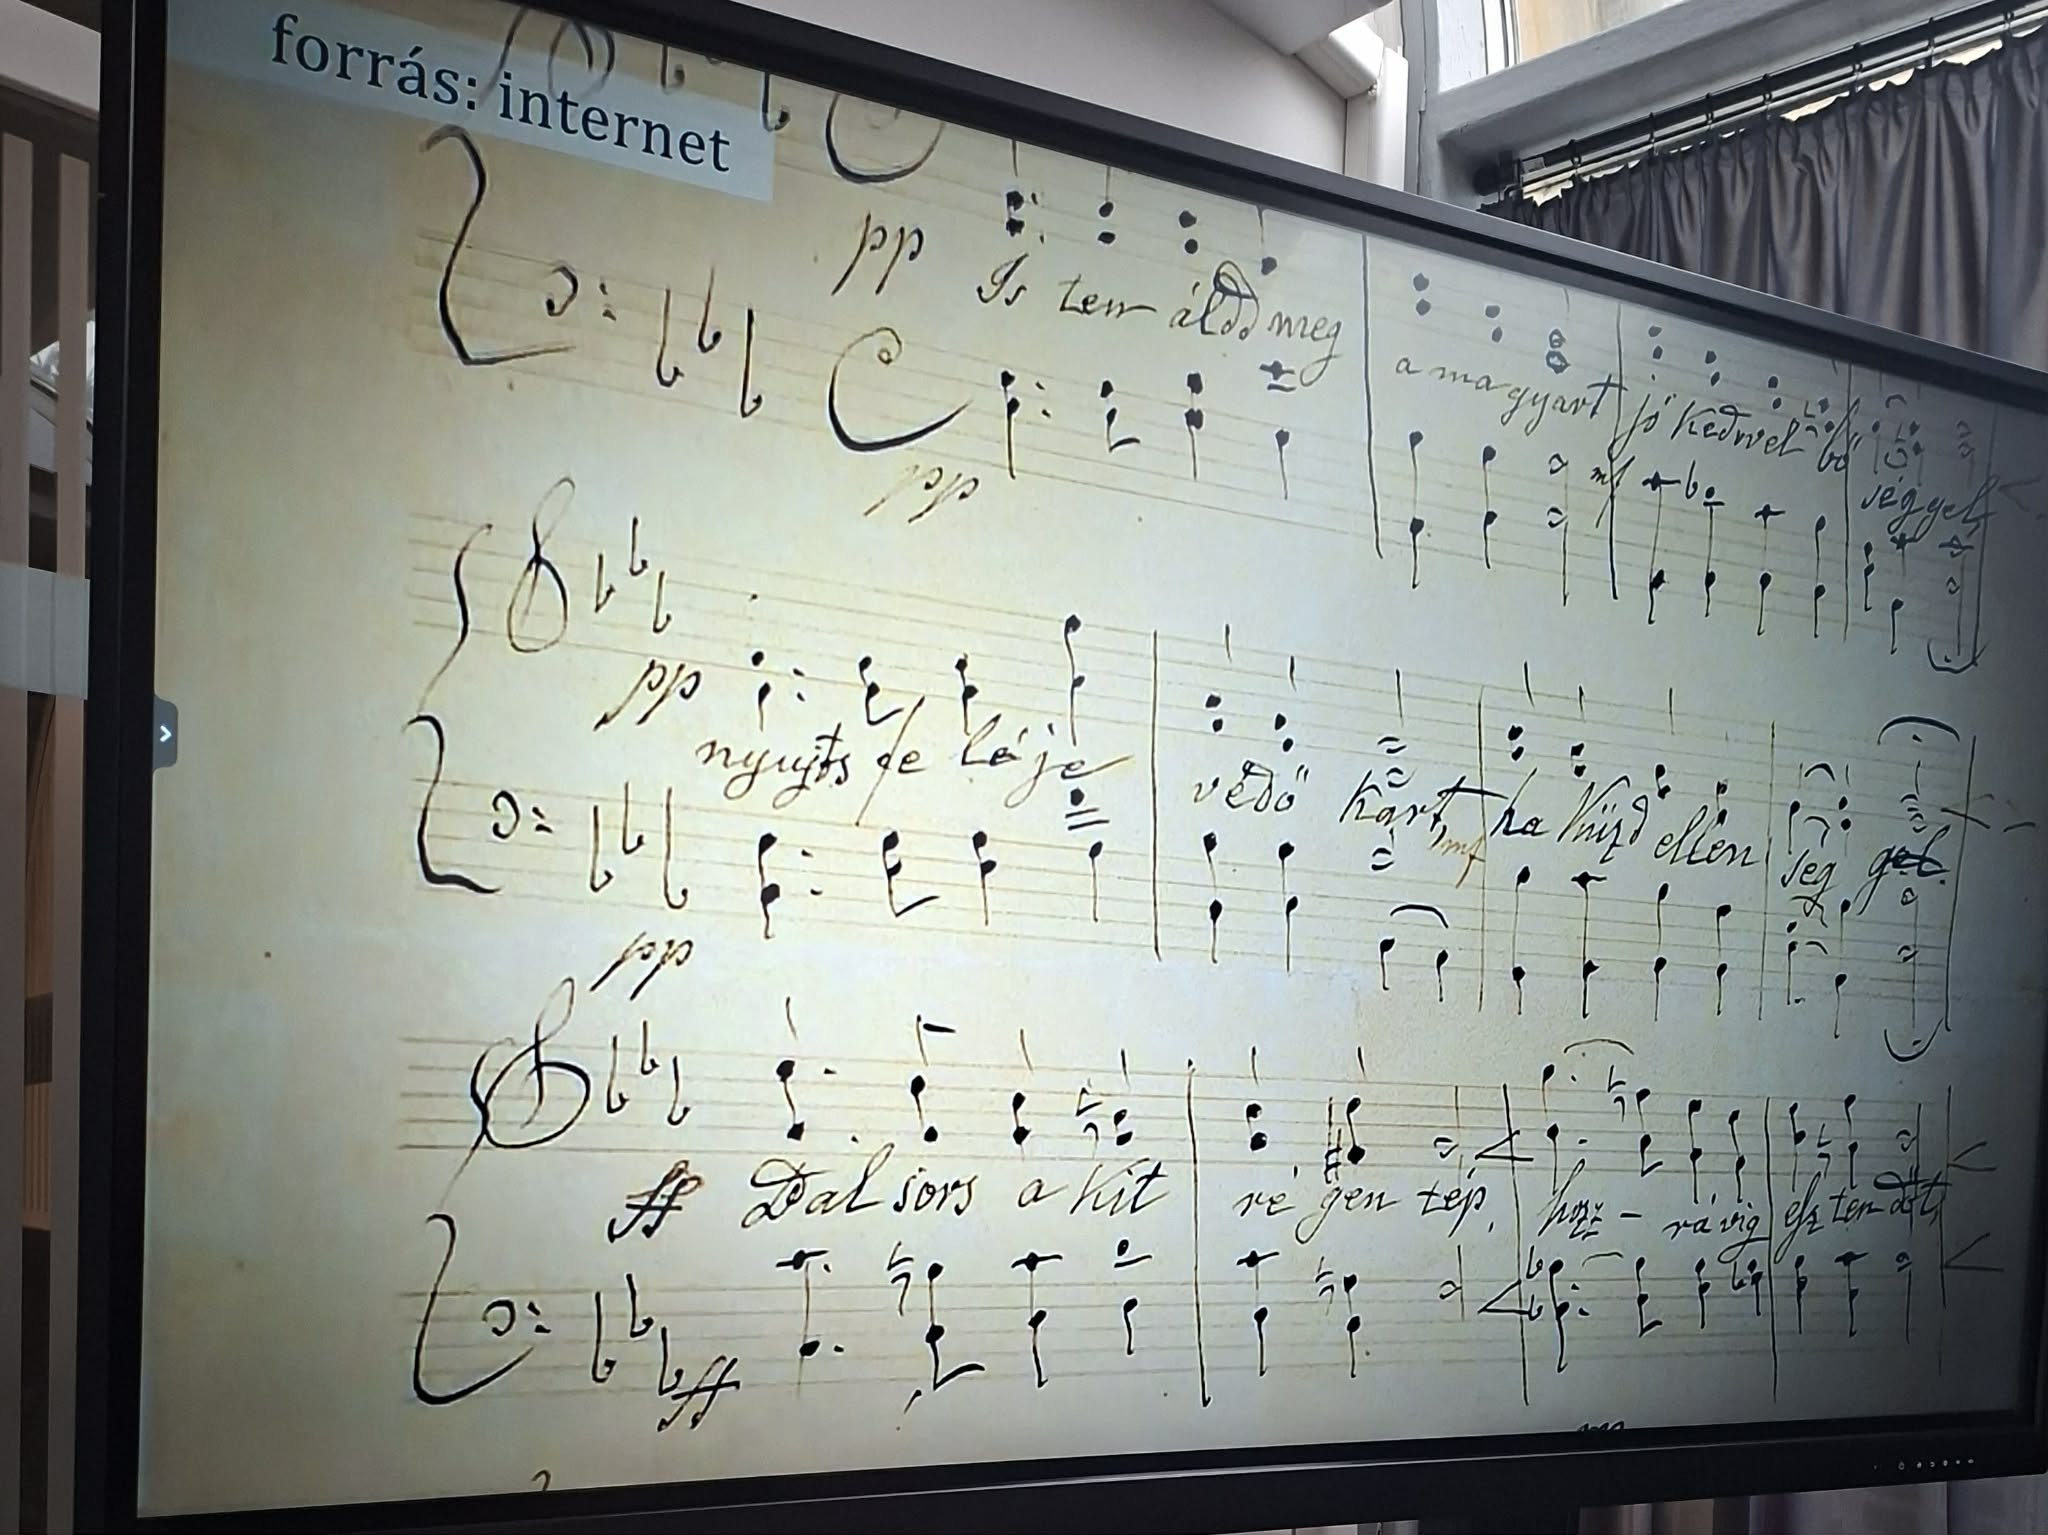 forrás: internet
pp
Is ten áldd meg a magyart jó kedvel bő séggel
pp
mf
pp
nyujts fe lé je védő kart, ha küzd ellen seg gel.
mf
pp
ff
Bal sors a kit ré gen tép, hozz - rá víg esz ten dőt,
ff